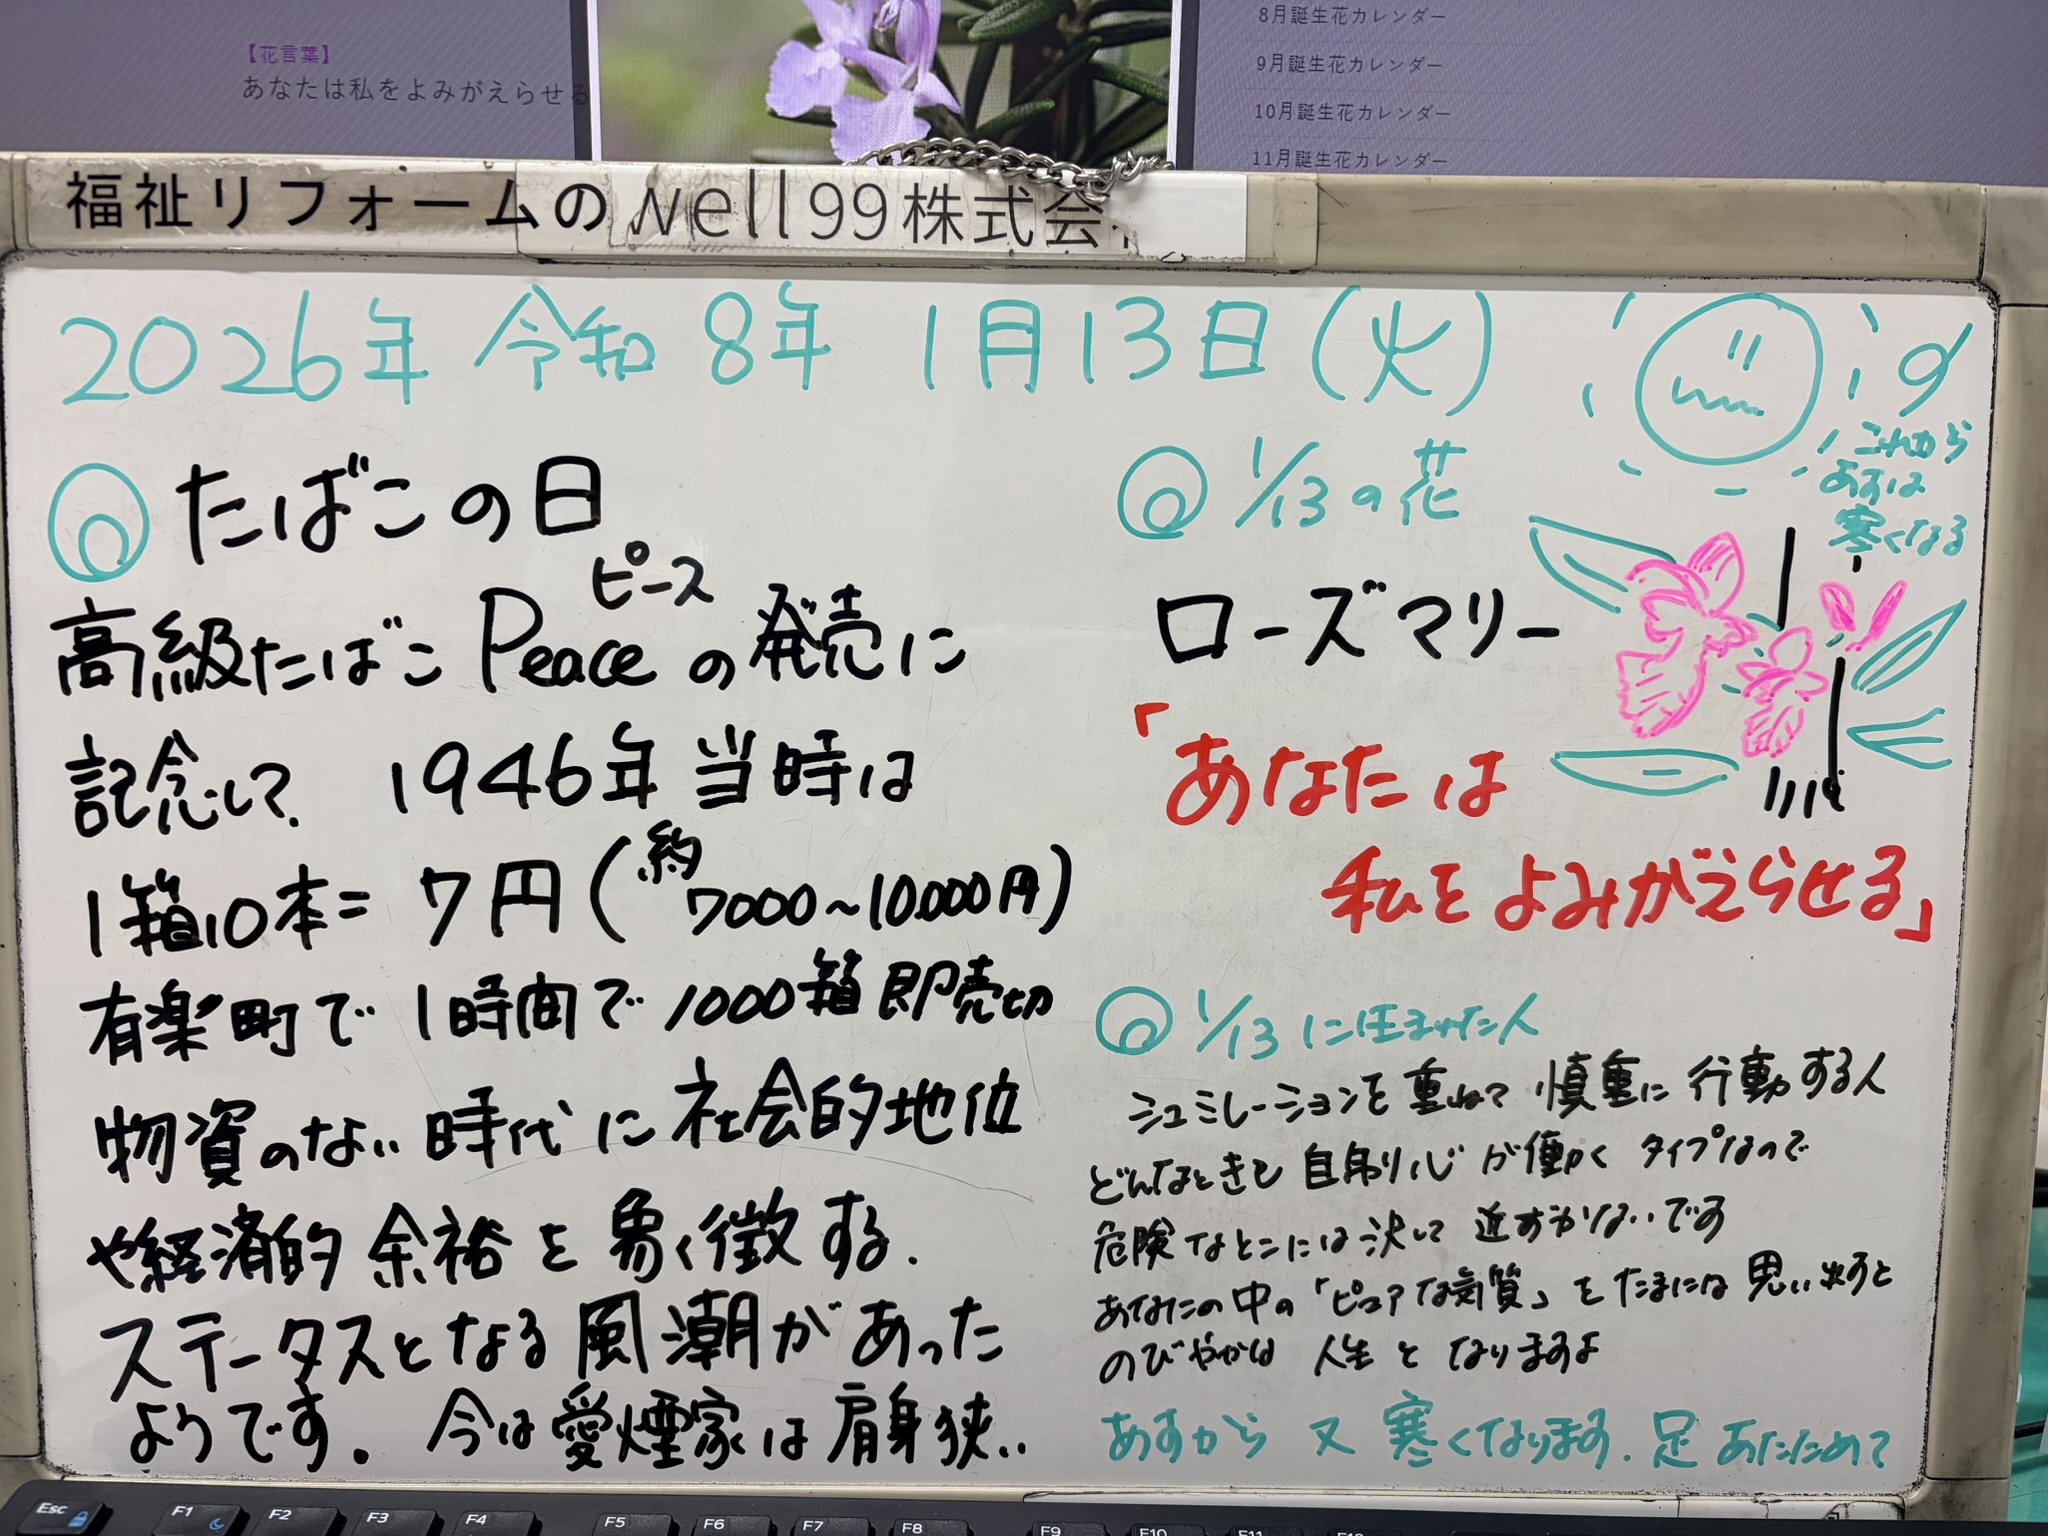 【花言葉】
あなたは私をよみがえらせる
8月誕生花カレンダー
9月誕生花カレンダー
10月誕生花カレンダー
11月誕生花カレンダー
福祉リフォームのwell99株式会
2026年 令和8年 1月13日(火)
これから
あすは
寒くなる
たばこの日
ピース
高級たばこPeaceの発売に
記念して. 1946年当時は
1箱10本= 7円(約7000~10.000円)
有楽町で1時間で1000箱即売切
物資のない時代に社会的地位
や経済的余裕を象く徴する.
ステータスとなる風潮があった
ようです. 今は愛煙家は肩身狭い
1/13の花
ローズマリー
「あなたは
私をよみがえらせる」
1/13に生まれた人
シュミレーションを重ねて慎重に行動する人
どんなときも自制心が働くタイプなので
危険なとこには決して近すかないです
あなたの中の「ピュアな気質」をたまには思い出すと
のびやかな人生となりますよ
あすから又寒くなります.足あたためて
Esc
F1
F2
F3
F4
F5
F6
F7
F8
F9
F10
F11